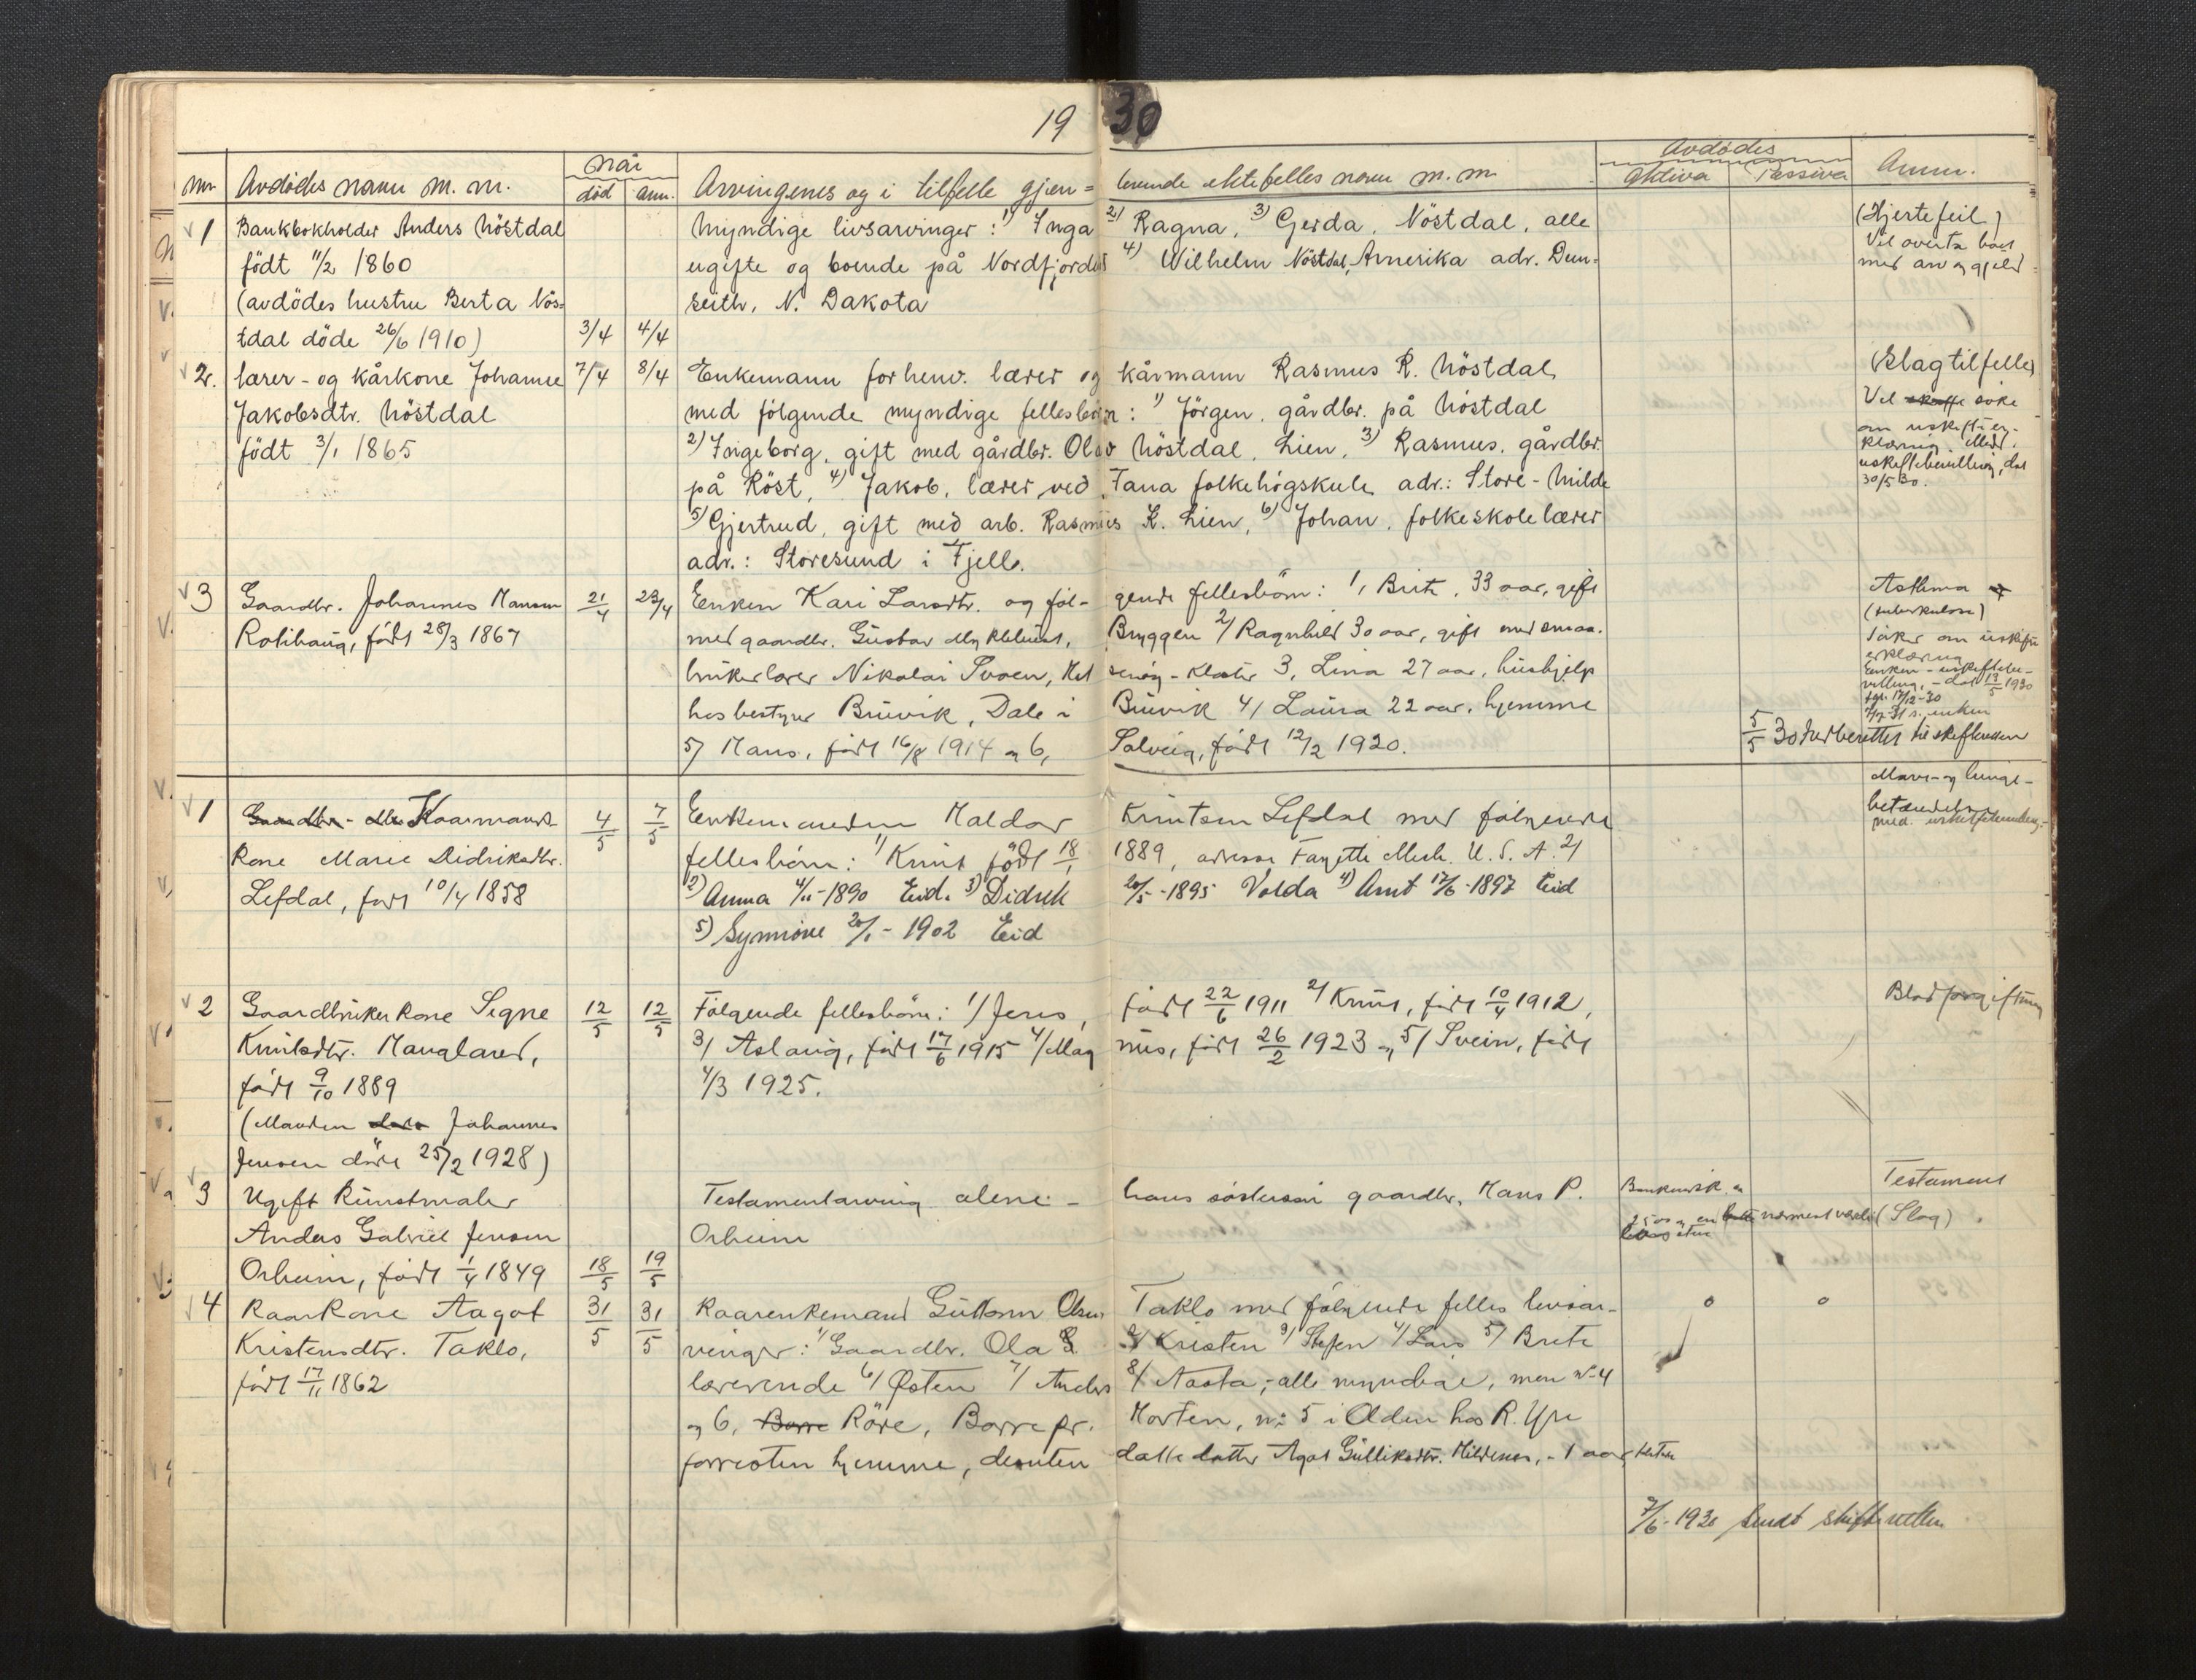 19 30
Nr. Avdødes navn m. m. Når Arvingenes og i tilfelle gjen= levende ektefelles navn m. m. Avdødes Anm.
død anm. Aktiva Passiva
1 Bankbokholder Anders Nöstdal Myndige livsarvinger: 1) Inga 2) Ragna, 3) Gerda, Nöstdal, alle (Hjertefeil)
født 11/2 1860 ugifte og boende på Nordfjordeid 4) Wilhelm Nöstdal, Amerika adr. Dun- Vil overta boet
(avdödes hustru Berta Nös- seith, N. Dakota med arv og gjeld
tdal döde 26/6 1910) 3/4 4/4
2. lærer- og kårkone Johanne 7/4 8/4 Enkemann forhenv. lærer og kårmann Rasmus R. Nöstdal (Slagtilfelle)
Jakobsdtr. Nöstdal med fölgende myndige fellesbörn: 1) Jörgen, gårdbr. på Nöstdal Vil skaffe söke
født 3/1 1865 2) Ingeborg, gift med gårdbr. Olav Nöstdal, Lien, 3) Rasmus, gårdbr. om uskifteer-
på Röst, 4) Jakob, lærer ved Fana folkehögskule adr.: Store-Milde klæring Medd.
5) Gjertrud, gift med arb. Rasmus K. Lien, 6) Johan, folkeskolelærer uskiftebevilling, dat
adr.: Storesund i Fjell. 30/5 30.
3 Gaardbr. Johannes Hansen 21/4 23/4 Enken Kari Larsdtr. og föl- gende fellesbörn: 1, Brite, 33 aar, gift Asthma
Rotihaug, födt 28/3 1867 med gaardbr. Gustav Myklebust, Bryggen 2/ Ragnhild 30 aar, gift med smaa- (tuberkulose)
brukerlærer Nikolai Svoen, Hel senöy-Kloster 3, Lina 27 aar, hushjelp Söker om uskifte
erklæring
hos bestyrer Bruvik, Dale i Bruvik 4/ Laura 22 aar, hjemme Enken - uskiftebe-
villing, - dat 13/5 1930
5/ Hans, födt 16/8 1914 og 6, Solveig, födt 12/2 1920. 5/5 30 Indberettet til skifteretten
1 Gaardbr. Kaarmands- 4/5 7/5 Enkemanden Haldor Knutsen Lefdal med fölgende Mave- og lunge-
Kone Marie Didriksdtr. fellesbörn: 1) Knut födt 18/1 1889, adresse Fayette Mich. U. S. A. 2/ betændelse
Lefdal, födt 10/4 1858 2) Anna 4/11-1890 Eid. 3) Didrik 20/5-1895 Volda 4) Arnt 17/6-1897 Eid
5) Synnöve 20/1-1902 Eid
2 Gaardbrukerkone Signe 12/5 12/5 Fölgende fellesbörn: 1/ Jens, födt 22/6 1911 2/ Knut, födt 10/4 1912, Blodforgiftning
Knutsdtr. Haugland, 3/ Aslaug, födt 17/6 1915 4/ Mag nus, födt 26/2 1923 og 5/ Svein, födt
födt 9/10 1889 4/3 1925.
(Manden Johannes
Jensen döde 25/2 1928)
3 Ugift Kunstmaler Testamentarving alene - hans söstersön gaardbr. Hans P. Bankinnsk. Testament
Anders Gabriel Jensen Orheim 2500 og en nærmest verdi (Slag)
Orheim, födt 1/4 1849 18/5 19/5
4 Kaarkone Aagot 31/5 31/5 Kaarenkemand Guttorm Olsen Taklo med fölgende felles livsar- 0 0
Kristensdtr. Taklo, vinger: 1/ Gaardbr. Ola G. 2/ Kristen 3/ Steffen 4/ Lars 5/ Brite
födt 17/11 1862 lærerinde 6/ Østen 7/ Anders 8/ Aasta, - alle myndige, men nr 4
og 6, Borre Röre, Borre pr. Horten, nr. 5 i Olden hos R. Yri
forresten hjemme, desuten datterdatter Agot Gulliksdtr. Hildenes, - 1 aar
7/6-1930 sendt skifteretten